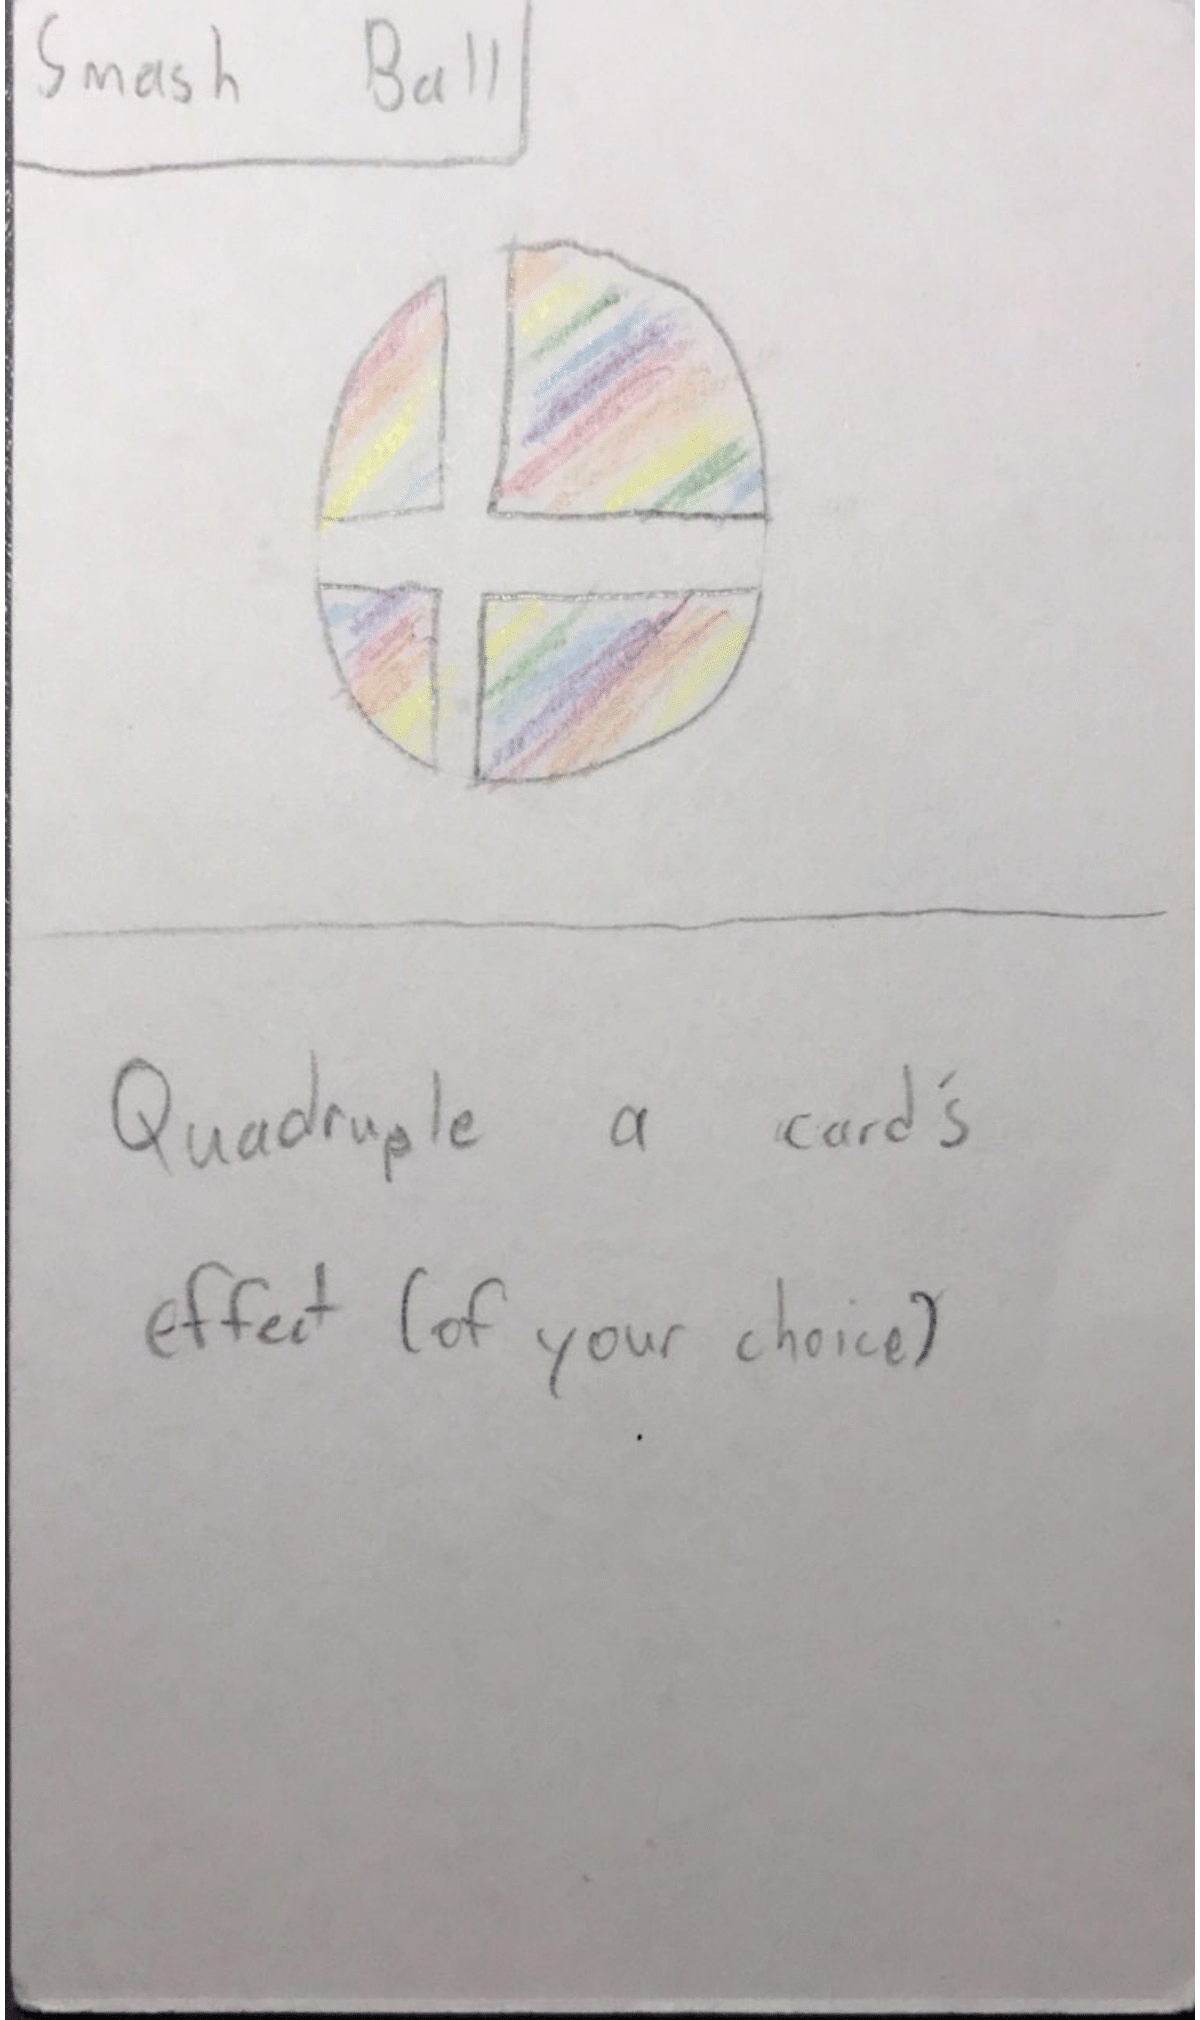 Smash Ball
Quadruple a card's
effect (of your choice)